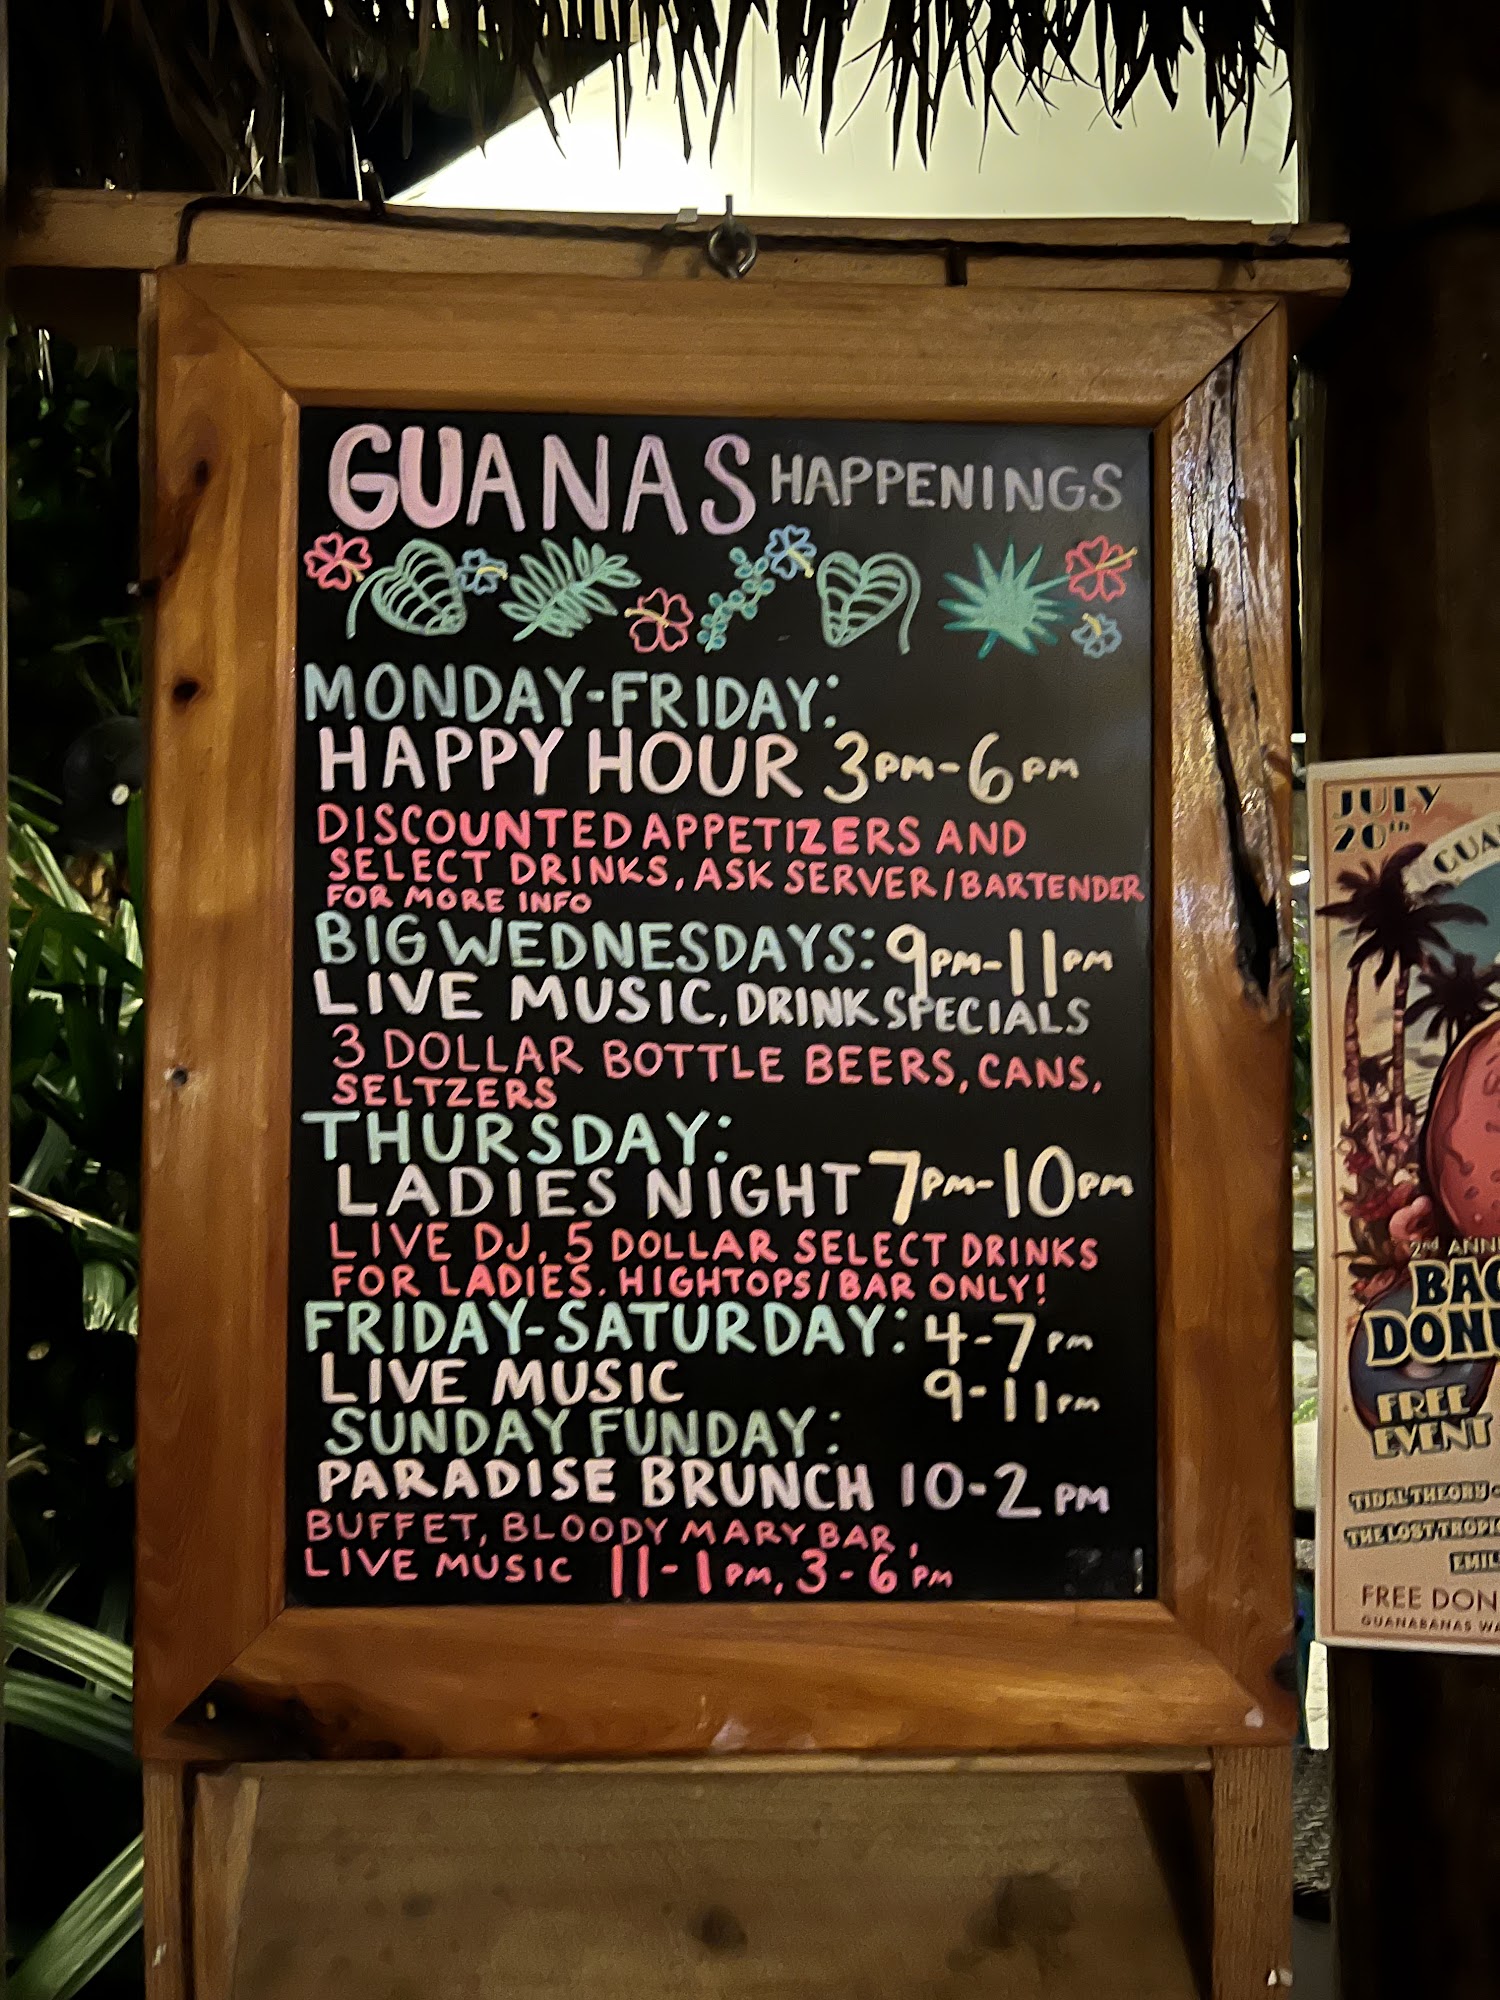 GUANAS HAPPENINGS
MONDAY-FRIDAY:
HAPPY HOUR 3PM-6PM
DISCOUNTED APPETIZERS AND
SELECT DRINKS, ASK SERVER/BARTENDER
FOR MORE INFO
BIG WEDNESDAYS: 9PM-11PM
LIVE MUSIC, DRINK SPECIALS
3 DOLLAR BOTTLE BEERS, CANS,
SELTZERS
THURSDAY:
LADIES NIGHT 7PM-10PM
LIVE DJ, 5 DOLLAR SELECT DRINKS
FOR LADIES. HIGHTOPS/BAR ONLY!
FRIDAY-SATURDAY: 4-7PM
LIVE MUSIC 9-11PM
SUNDAY FUNDAY:
PARADISE BRUNCH 10-2 PM
BUFFET, BLOODY MARY BAR,
LIVE MUSIC 11-1PM, 3-6PM
JULY
20th
2nd
FREE
EVENT
TIDAL THEORY
THE LOST
FREE
GUANABANAS